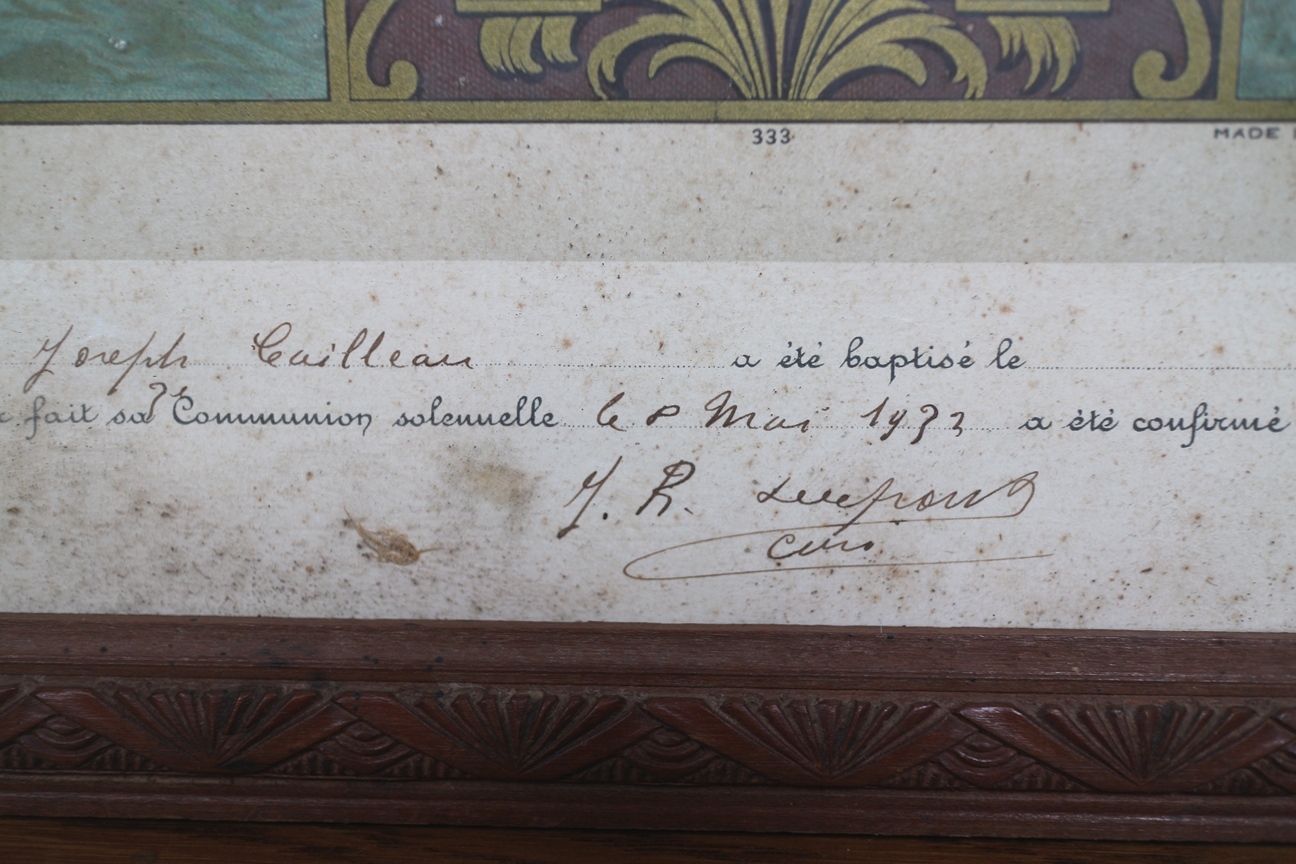 333
MADE
Joseph Cailleau a été baptisé le
fait sa Communion solennelle le 8 Mai 1932 a été confirmé
J. R.